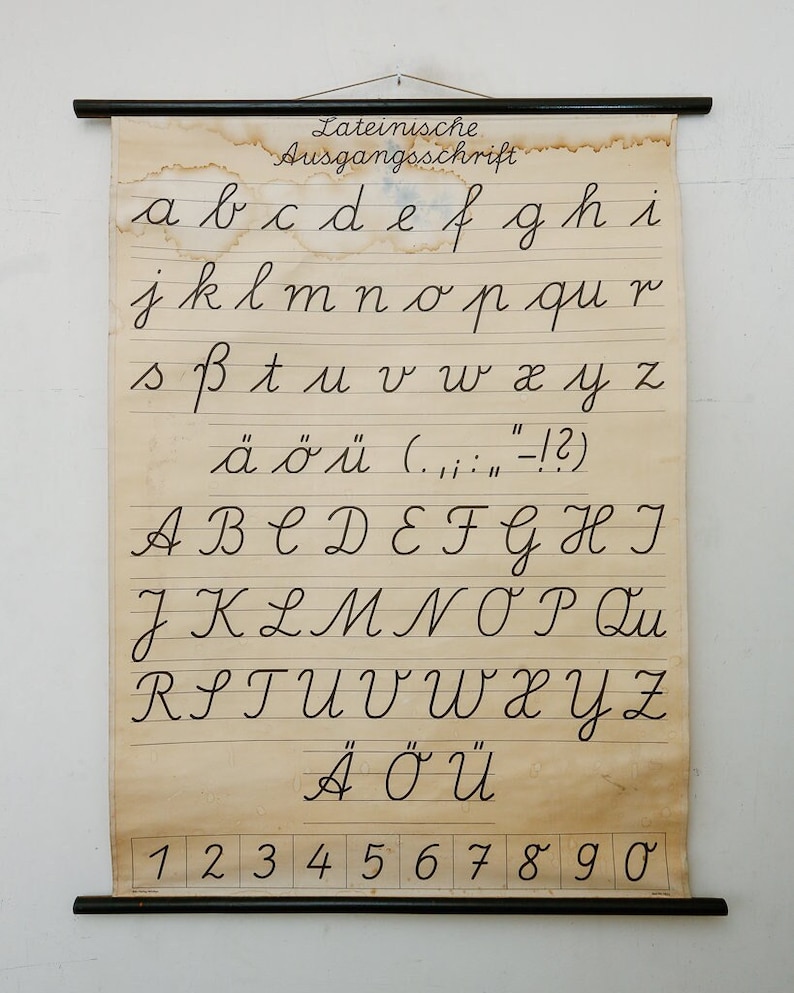 Lateinische
Ausgangsschrift
a b c d e f g h i
j k l m n o p qu r
s ß t u v w x y z
ä ö ü (. , ; : „ " – ! ?)
A B C D E F G H I
J K L M N O P Qu
R S T U V W X Y Z
Ä Ö Ü
1 2 3 4 5 6 7 8 9 0